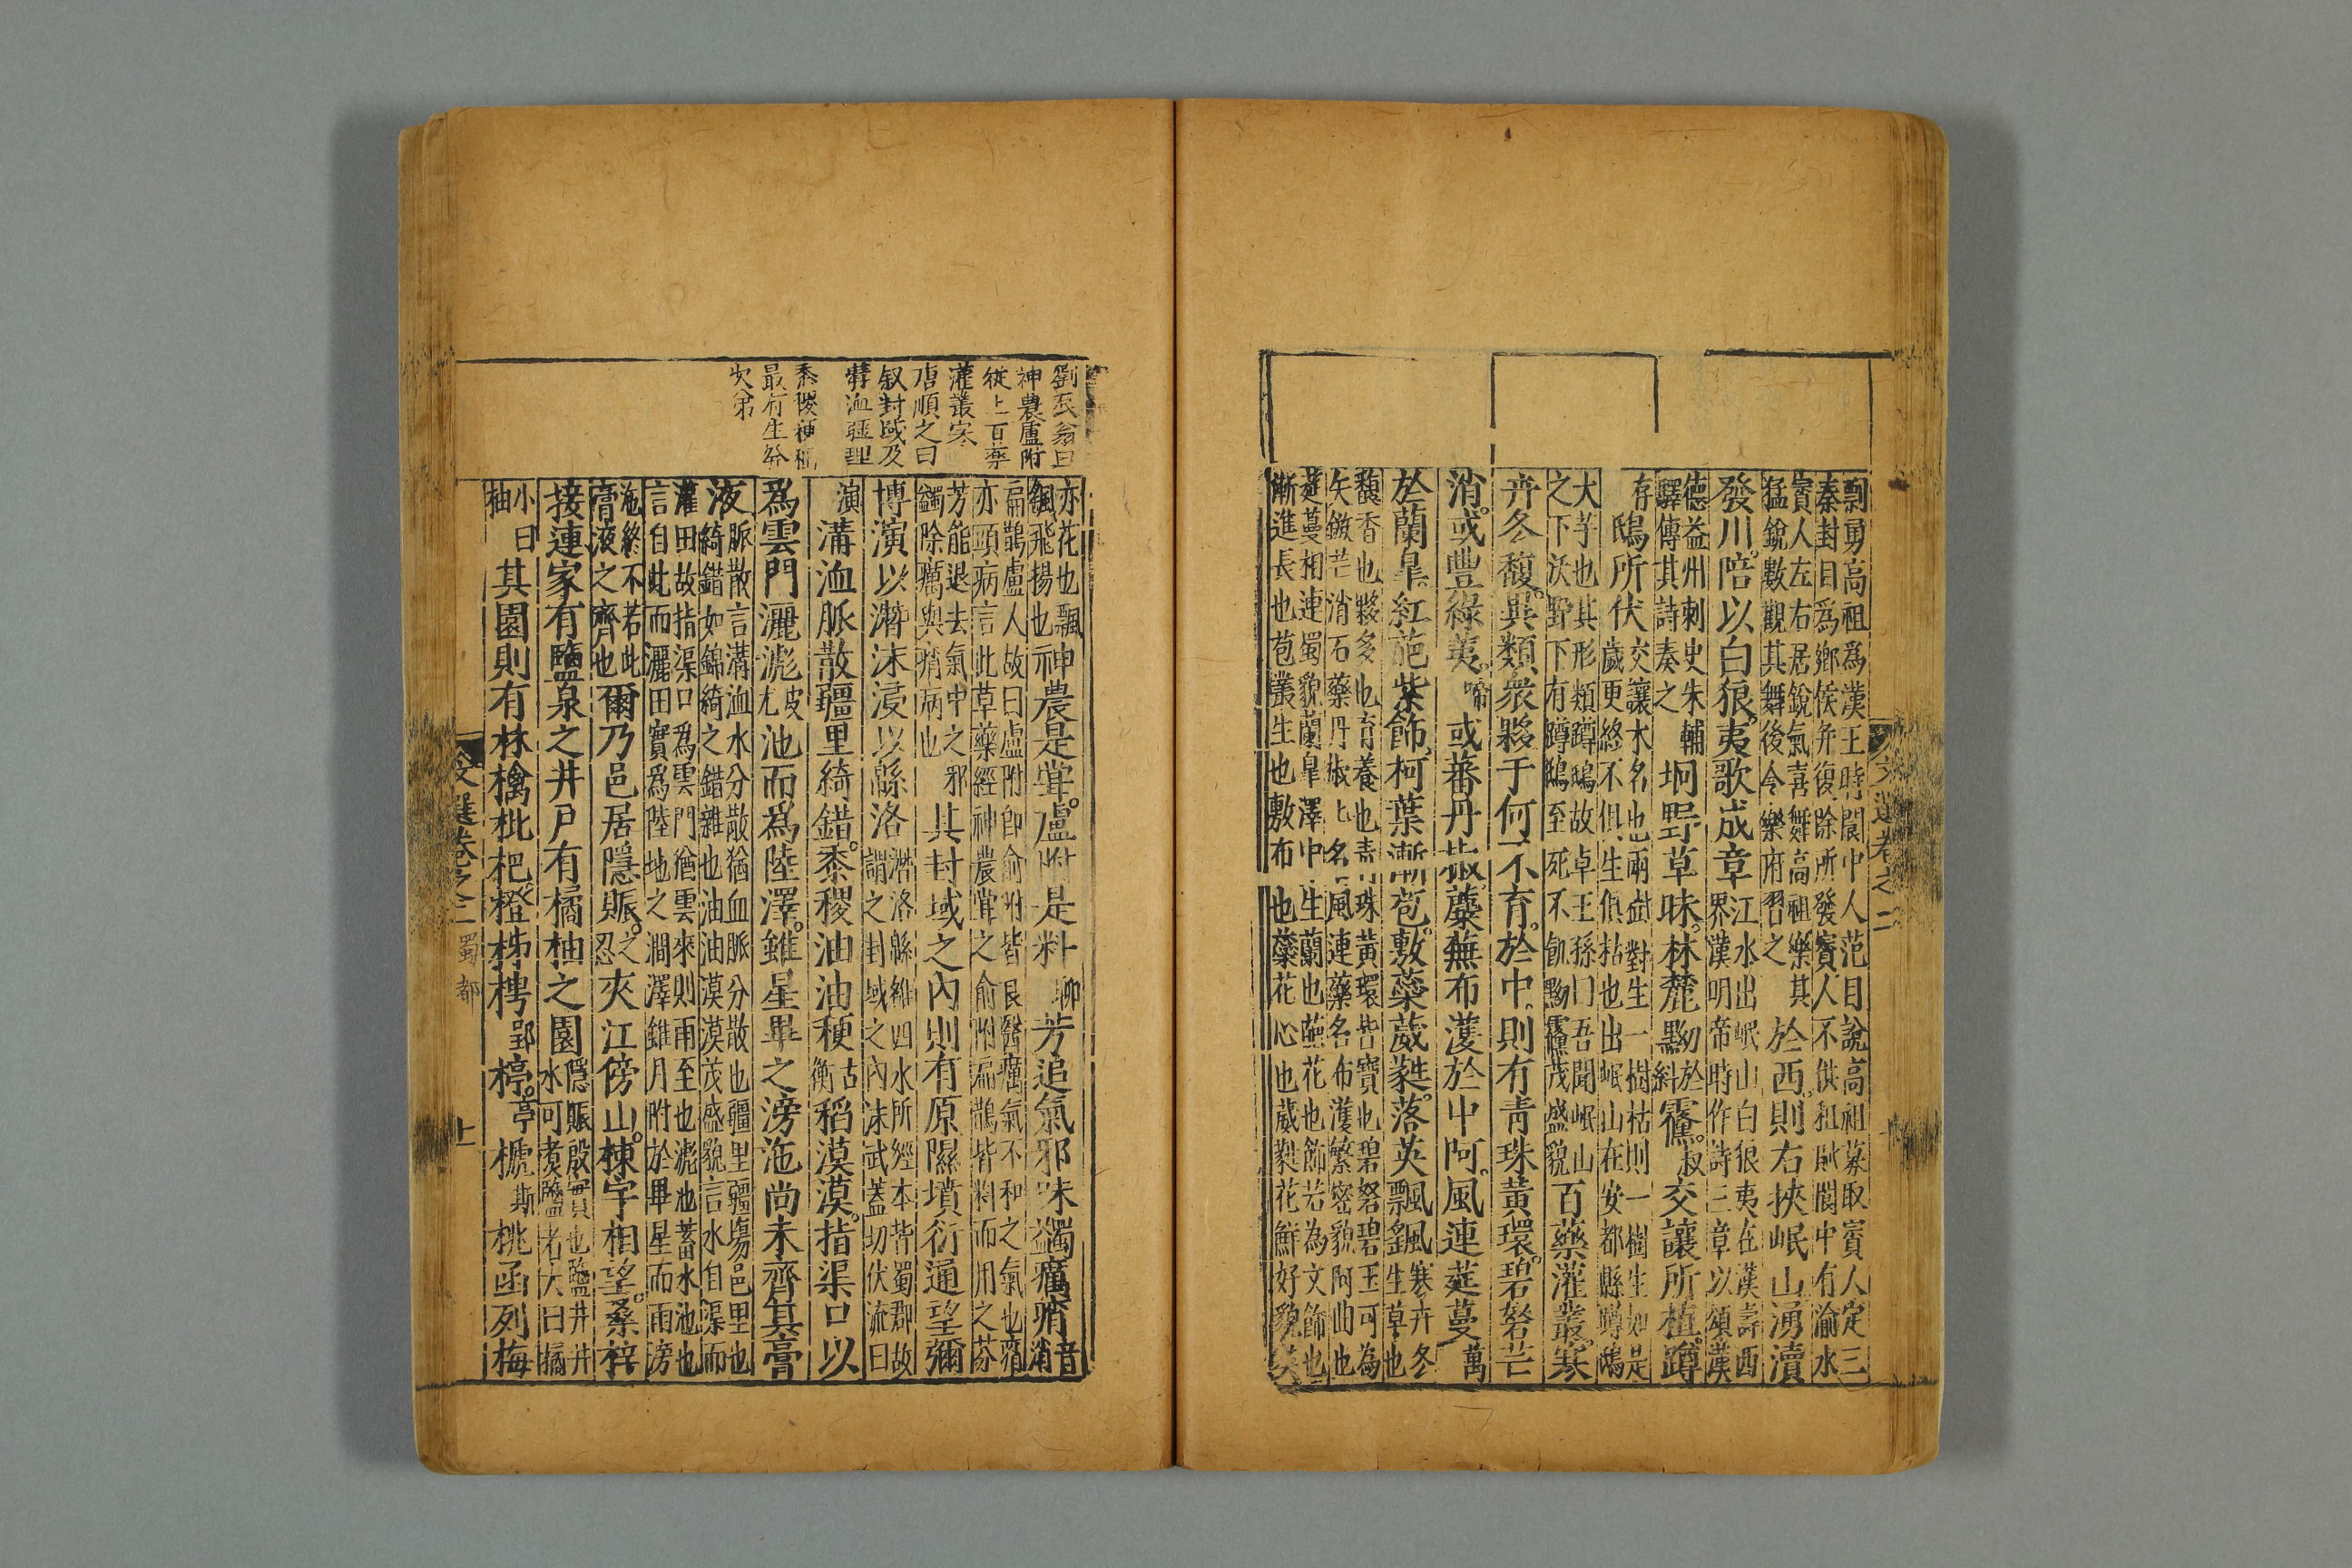 剽勇高祖爲漢王時閬中人范目說高祖募取賨人定三
秦封目爲鄉侯并復除所發賨人不供租賦閬中有渝水
賨人左右居銳氣喜舞高祖樂其
猛銳數觀其舞後令樂府習之
於西則右挾岷山湧瀆
發川陪以白狼夷歌成章
江水出岷山白狼夷在漢壽西
界漢明帝時作詩三章以頌漢
德益州刺史朱輔
驛傳其詩奏之
坰野草昧林麓黝於糾儵叔交讓所植蹲
存鴟所伏
交讓木名也兩樹對生一樹枯則一樹生如是
歲更終不俱生俱枯也出岷山在安都縣蹲鴟
大芋也其形類蹲鴟故卓王孫曰吾聞岷山
之下沃野下有蹲鴟至死不飢黝儵茂盛貌
百藥灌叢寒
卉冬馥異類衆夥于何不育於中則有青珠黃環碧砮芒
消或豐綠荑啼或蕃丹椒蘼蕪布濩於中阿風連莚蔓萬
於蘭臯紅葩紫飾柯葉漸苞敷蘂葳蕤落英飄颻
寒卉冬
生草也
馥香也夥多也育養也青珠黃環皆寶也碧砮碧玉可為
矢鏃芒消石藥丹椒名風連藥名布濩繁密貌阿曲也
莚蔓相連蜀貌蘭臯澤中生蘭也葩花也飾若為文飾也
漸進長也苞叢生也敷布也蘂花心也葳蕤花鮮好貌英
文選卷之二
亦花也飄
颻飛揚也
神農是甞盧附是料聊芳追氣邪味蠲癘痟音消
扁鵲盧人故曰盧附即俞附皆良醫癘氣不和之氣也痟
亦頭病言此草藥經神農甞之俞附扁鵲皆料而用之芬
芳能退去氣中之邪
蠲除癘與痟病也
其封域之內則有原隰墳衍通望彌
博演以潛沬浸以緜洛
潛洛緜維四水所經本皆蜀郡故
謂之封域之內沬武蓋切伏流曰
演
溝洫脈散疆里綺錯黍稷油油稉古衡稻漠漠指渠口以
爲雲門灑滮皮尤池而爲陸澤雖星畢之滂沲尚未齊其膏
液
脈散言溝洫水分散猶血脈分散也疆里疆場邑里也
綺錯如錦綺之錯雜也油油漠漠茂盛貌言水自渠而
灌田故指渠口爲雲門猶雲來則雨至也滮池蓄水池也
言自此而灑田實爲陸地之澗澤雖月附於畢星而雨滂
沲終不若此
膏液之齊也
爾乃邑居隱賑之忍夾江傍山棟宇相望桑梓
接連家有鹽泉之井戶有橘柚之園
隱賑殷實也鹽井井
水可煑鹽者大曰橘
小曰
柚
其園則有林檎枇杷橙柹梬郢楟亭榹斯桃函列梅
劉辰翁曰
神農盧附
從上百藥
灌叢寒
唐順之曰
叙封域及
溝洫疆理
黍稷稉稻
最有生發
次第
文選卷之二
蜀都
上